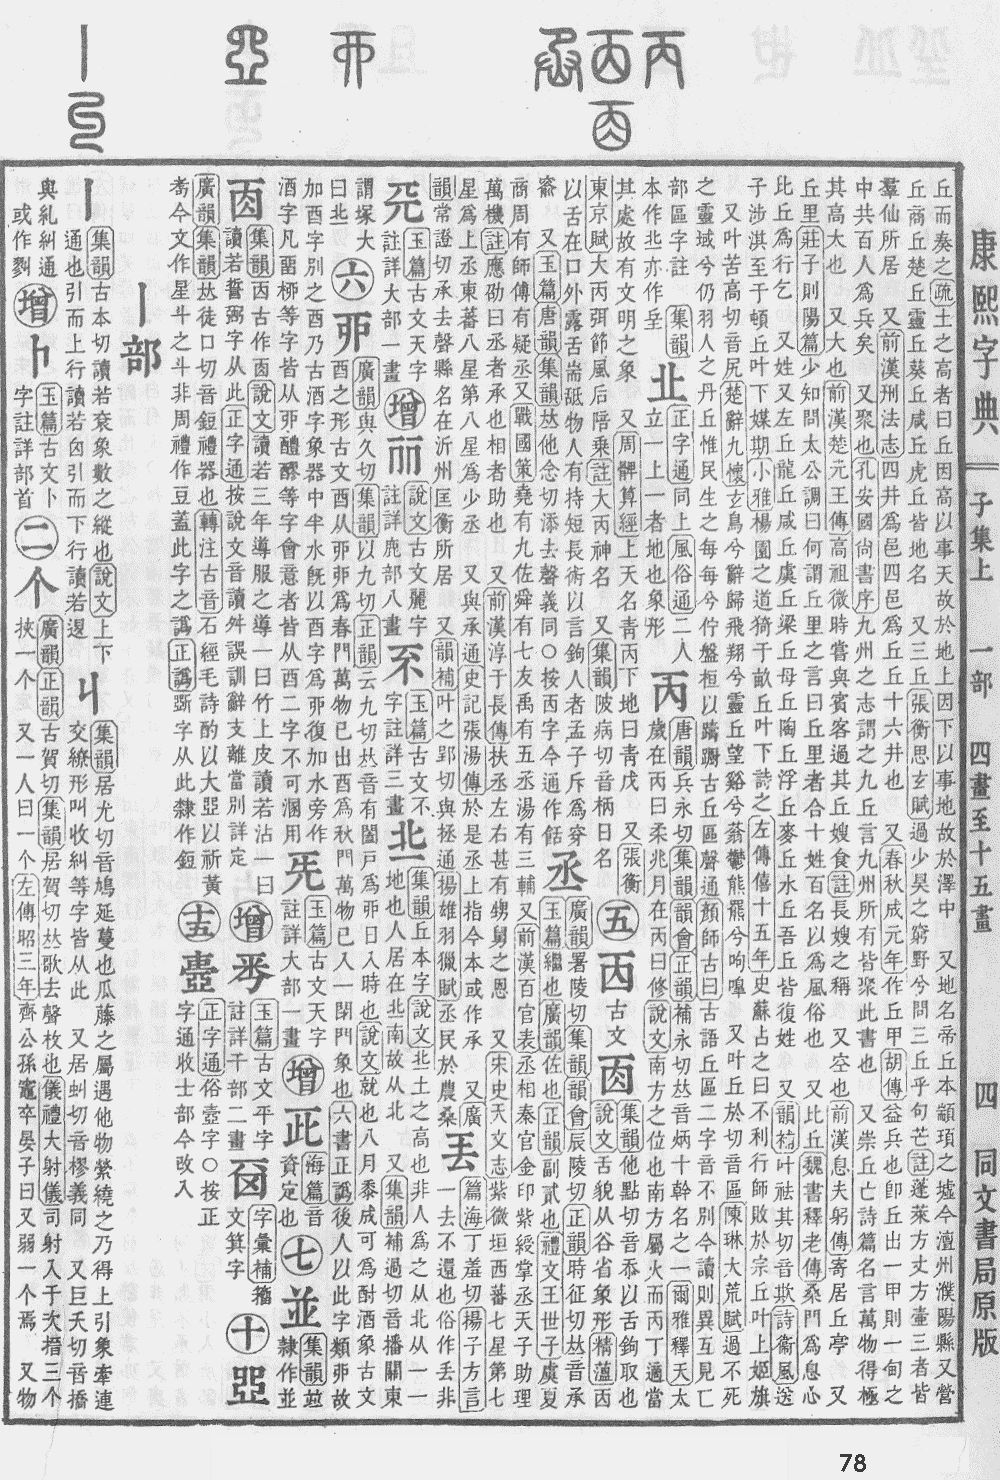 康熙字典 子集上 一部 四畫至十五畫 四 同文書局原版
丘而奏之疏土之高者曰丘因高以事天故於地上因下以事地故於澤中 又地名帝丘本顓頊之墟今澶州濮陽縣又營
丘商丘楚丘靈丘葵丘咸丘虎丘皆地名 又三丘張衡思玄賦過少昊之窮野兮問三丘乎句芒註蓬萊方丈方壷三者皆
羣仙所居 又前漢刑法志四井爲邑四邑爲丘丘十六井也 又春秋成元年作丘甲胡傳益兵也卽丘出一甲則一甸之
中共百人爲兵矣 又聚也孔安國尚書序九州之志謂之九丘言九州所有皆聚此書也 又崇丘亡詩篇名言萬物得極
其高大也 又大也前漢楚元王傳高祖微時嘗與賓客過其丘嫂食註長嫂之稱 又空也前漢息夫躬傳寄居丘亭 又
丘里莊子則陽篇少知問太公調曰何謂丘里之言曰丘里者合十姓百名以爲風俗也 又比丘魏書釋老傳桑門爲息心
比丘爲行乞 又姓又左丘龍丘咸丘虞丘梁丘母丘陶丘浮丘麥丘水丘吾丘皆復姓 又韻補叶祛其切音欺詩衞風送
子涉淇至于頓丘叶下媒期小雅楊園之道猗于畝丘叶下詩之左傳僖十五年史蘇占之曰不利行師敗於宗丘叶上姬旗
又叶苦高切音尻楚辭九懷玄鳥兮辭歸飛翔兮靈丘望谿兮滃鬱熊羆兮呴嘷 又叶丘於切音區陳琳大荒賦過不死
之靈域兮仍羽人之丹丘惟民生之每每兮佇盤桓以躊躕 古丘區聲通顏師古曰古語丘區二字音不別今讀則異互見匸
部區字註 集韻
本作北亦作坵
正字通同上風俗通二人
立一上一者地也象形
丙 唐韻兵永切集韻韻會正韻補永切𠀤音炳十幹名之一爾雅釋天太
歲在丙曰柔兆月在丙曰修說文南方之位也南方屬火而丙丁適當
其處故有文明之象 又周髀算經上天名靑丙下地曰靑戊 又張衡
東京賦大丙弭節風后陪乗註大丙神名 又集韻陂病切音柄日名
五 丙 古文
㐁 集韻他點切音忝以舌鉤取也
說文舌貌从谷省象形精薀㐁
以舌在口外露舌耑䑛物人有持短長術以言鉤人者孟子斥爲穿
窬 又玉篇唐韻集韻𠀤他念切添去聲義同○按㐁字今通作餂
丞 廣韻署陵切集韻韻會辰陵切正韻時征切𠀤音承
玉篇繼也廣韻佐也正韻副貳也禮文王世子虞夏
商周有師傅有疑丞又戰國策堯有九佐舜有七友禹有五丞湯有三輔 又前漢百官表丞相秦官金印紫綬掌丞天子助理
萬機註應劭曰丞者承也相者助也 又前漢淳于長傳扶丞左右甚有甥舅之恩 又宋史天文志紫微垣西蕃七星第七
星爲上丞東蕃八星第八星爲少丞 又與承通史記張湯傳於是丞上指今本或作承 又廣韻集韻常證切
承去聲縣名在沂州匡衡所居 又韻補叶之郢切與拯通揚雄羽獵賦丞民於農桑
丟 篇海丁羞切揚子方言
一去不還也俗作丢非
玉篇古文天字
註詳大部一畫
增 丽 說文古文麗字
註詳鹿部八畫
玉篇古文不
字註詳三畫
集韻丘本字說文土之高也非人爲之从北从一一
地也人居在北南故从北 又集韻補過切音播關東
謂塚大
曰北
六 丣 廣韻與久切集韻以九切正韻云九切𠀤音有闔戸爲丣日入時也說文就也八月黍成可爲酎酒象古文
酉之形古文酉从丣丣爲春門萬物已出酉爲秋門萬物已入一閉門象也六書正譌後人以此字類丣故
加酉字別之酉乃古酒字象器中半水旣以酉字爲丣復加水旁作
酒字凡畱桺等字皆从丣醴醪等字會意者皆从酉二字不可溷用
玉篇古文天字
註詳大部一畫
增 海篇音
資定也
七 並 集韻並
隸作並
㐁 集韻㐁古作㐁說文讀若三年導服之導一曰竹上皮讀若沾一曰
讀若誓弼字从此正字通按說文音讀舛誤訓辭支離當別詳定
增 玉篇古文平字
註詳干部二畫
字彙補籀
文箕字
十 𠁁
廣韻集韻𠀤徒口切音鋀禮器也轉注古音石經毛詩酌以大𠁁以祈黃
耇今文作星斗之斗非周禮作豆蓋此字之譌正譌斲字从此隸作鋀
十五 正字通俗壺字○按正
字通收士部今改入
丨部
丨 集韻古本切讀若衮象數之縱也說文上下
通也引而上行讀若囟引而下行讀若𨓤
丩 集韻居尤切音鳩延蔓也瓜藤之屬遇他物縈繞之乃得上引象牽連
交繚形叫收糾等字皆从此 又居虯切音樛義同 又巨夭切音撟
與糺糾通
或作剹
增 玉篇古文卜
字註詳部首
二 个 廣韻正韻古賀切集韻居賀切𠀤歌去聲枚也儀禮大射儀司射入于次搢三个
挾一个 又一人曰一个左傳昭三年齊公孫竈卒晏子曰又弱一个焉 又物
78